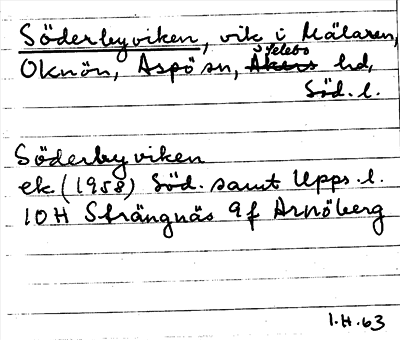 Söderbyviken, vik i Mälaren,
Oknön, Aspö sn, Selebo hd,
Söd. l.
Söderbyviken
ek (1958) Söd. samt Upps. l.
10H Strängnäs 9f Arnöberg
1.H.63